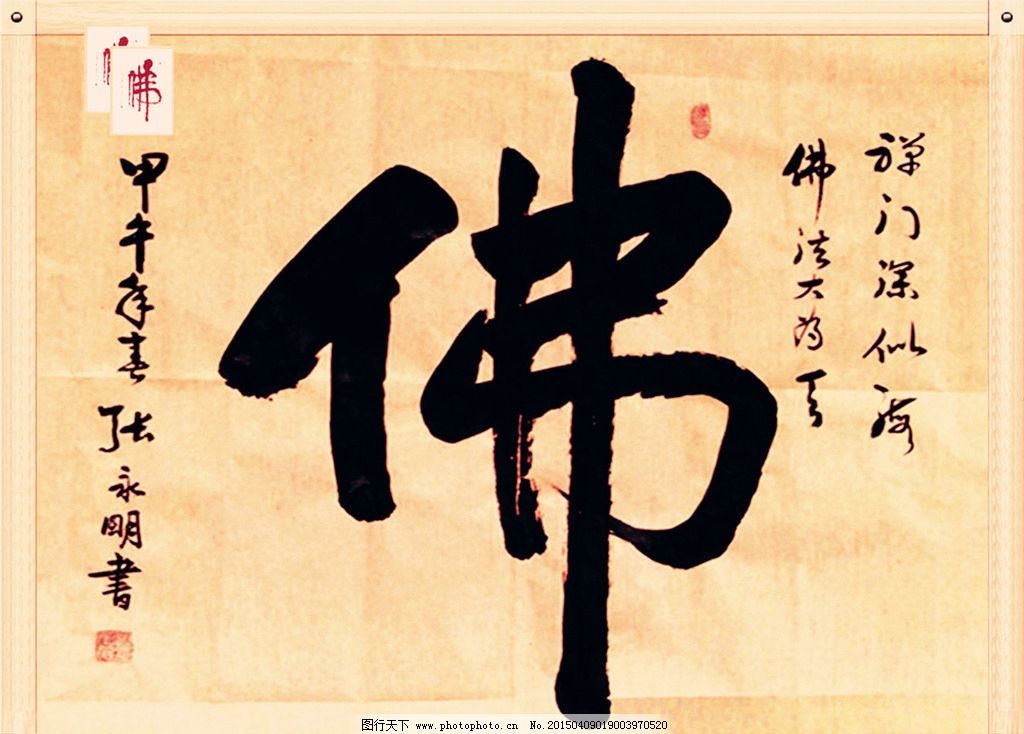 禅门深似海
佛法大为天
佛
甲午年春 张永明書
佛
图行天下 www.photophoto.cn No.20150409019003970520